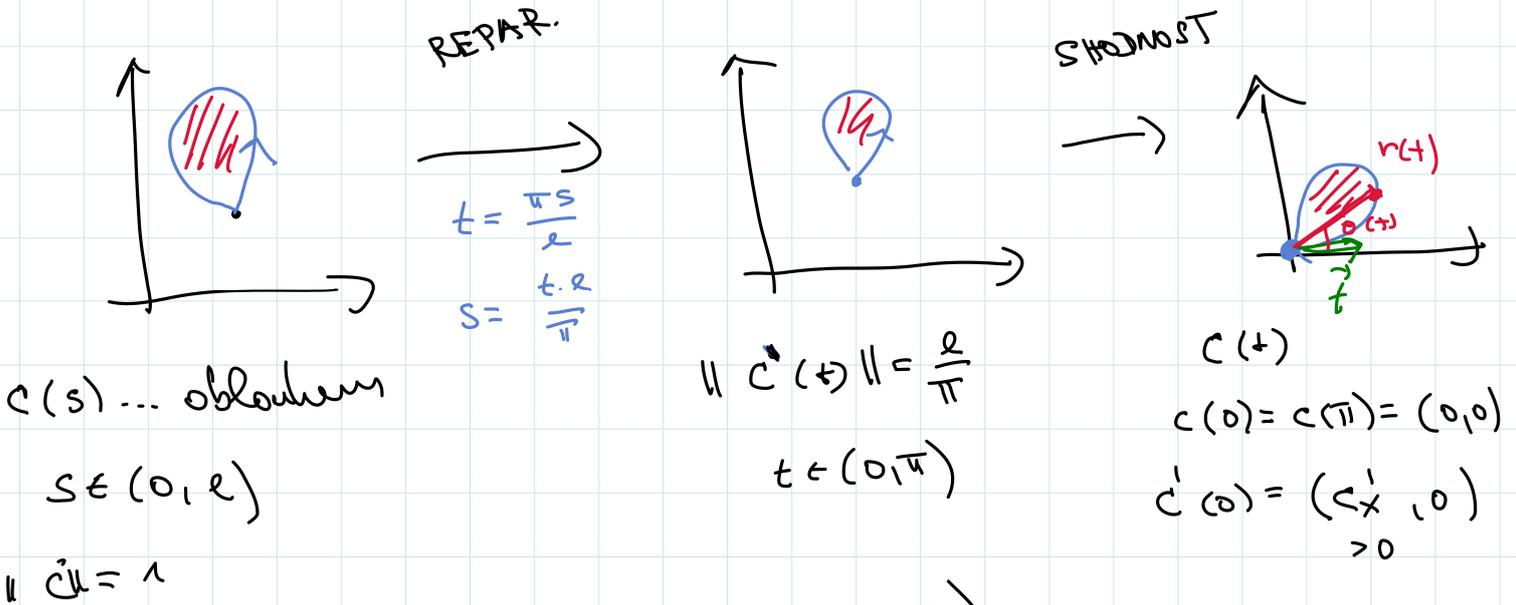 REPAR.
SHODNOST
t = πs/l
s = t.l/π
r(t)
θ(t)
t⃗
c(s) ... obloukem
s ∈ (0, l)
|| ċ || = 1
|| c'(t) || = l/π
t ∈ (0, π)
c(t)
c(0) = c(π) = (0,0)
c'(0) = (c'x, 0)
> 0